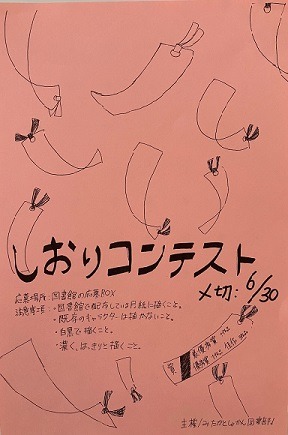 しおりコンテスト
〆切: 6/30
応募場所:図書館の応募BOX
注意事項:・図書館で配布している用紙に描くこと。
・既存のキャラクターは描かないこと。
・白黒で描くこと。
・濃く、はっきりと描くこと。
賞
最優秀賞
優秀賞
主催/